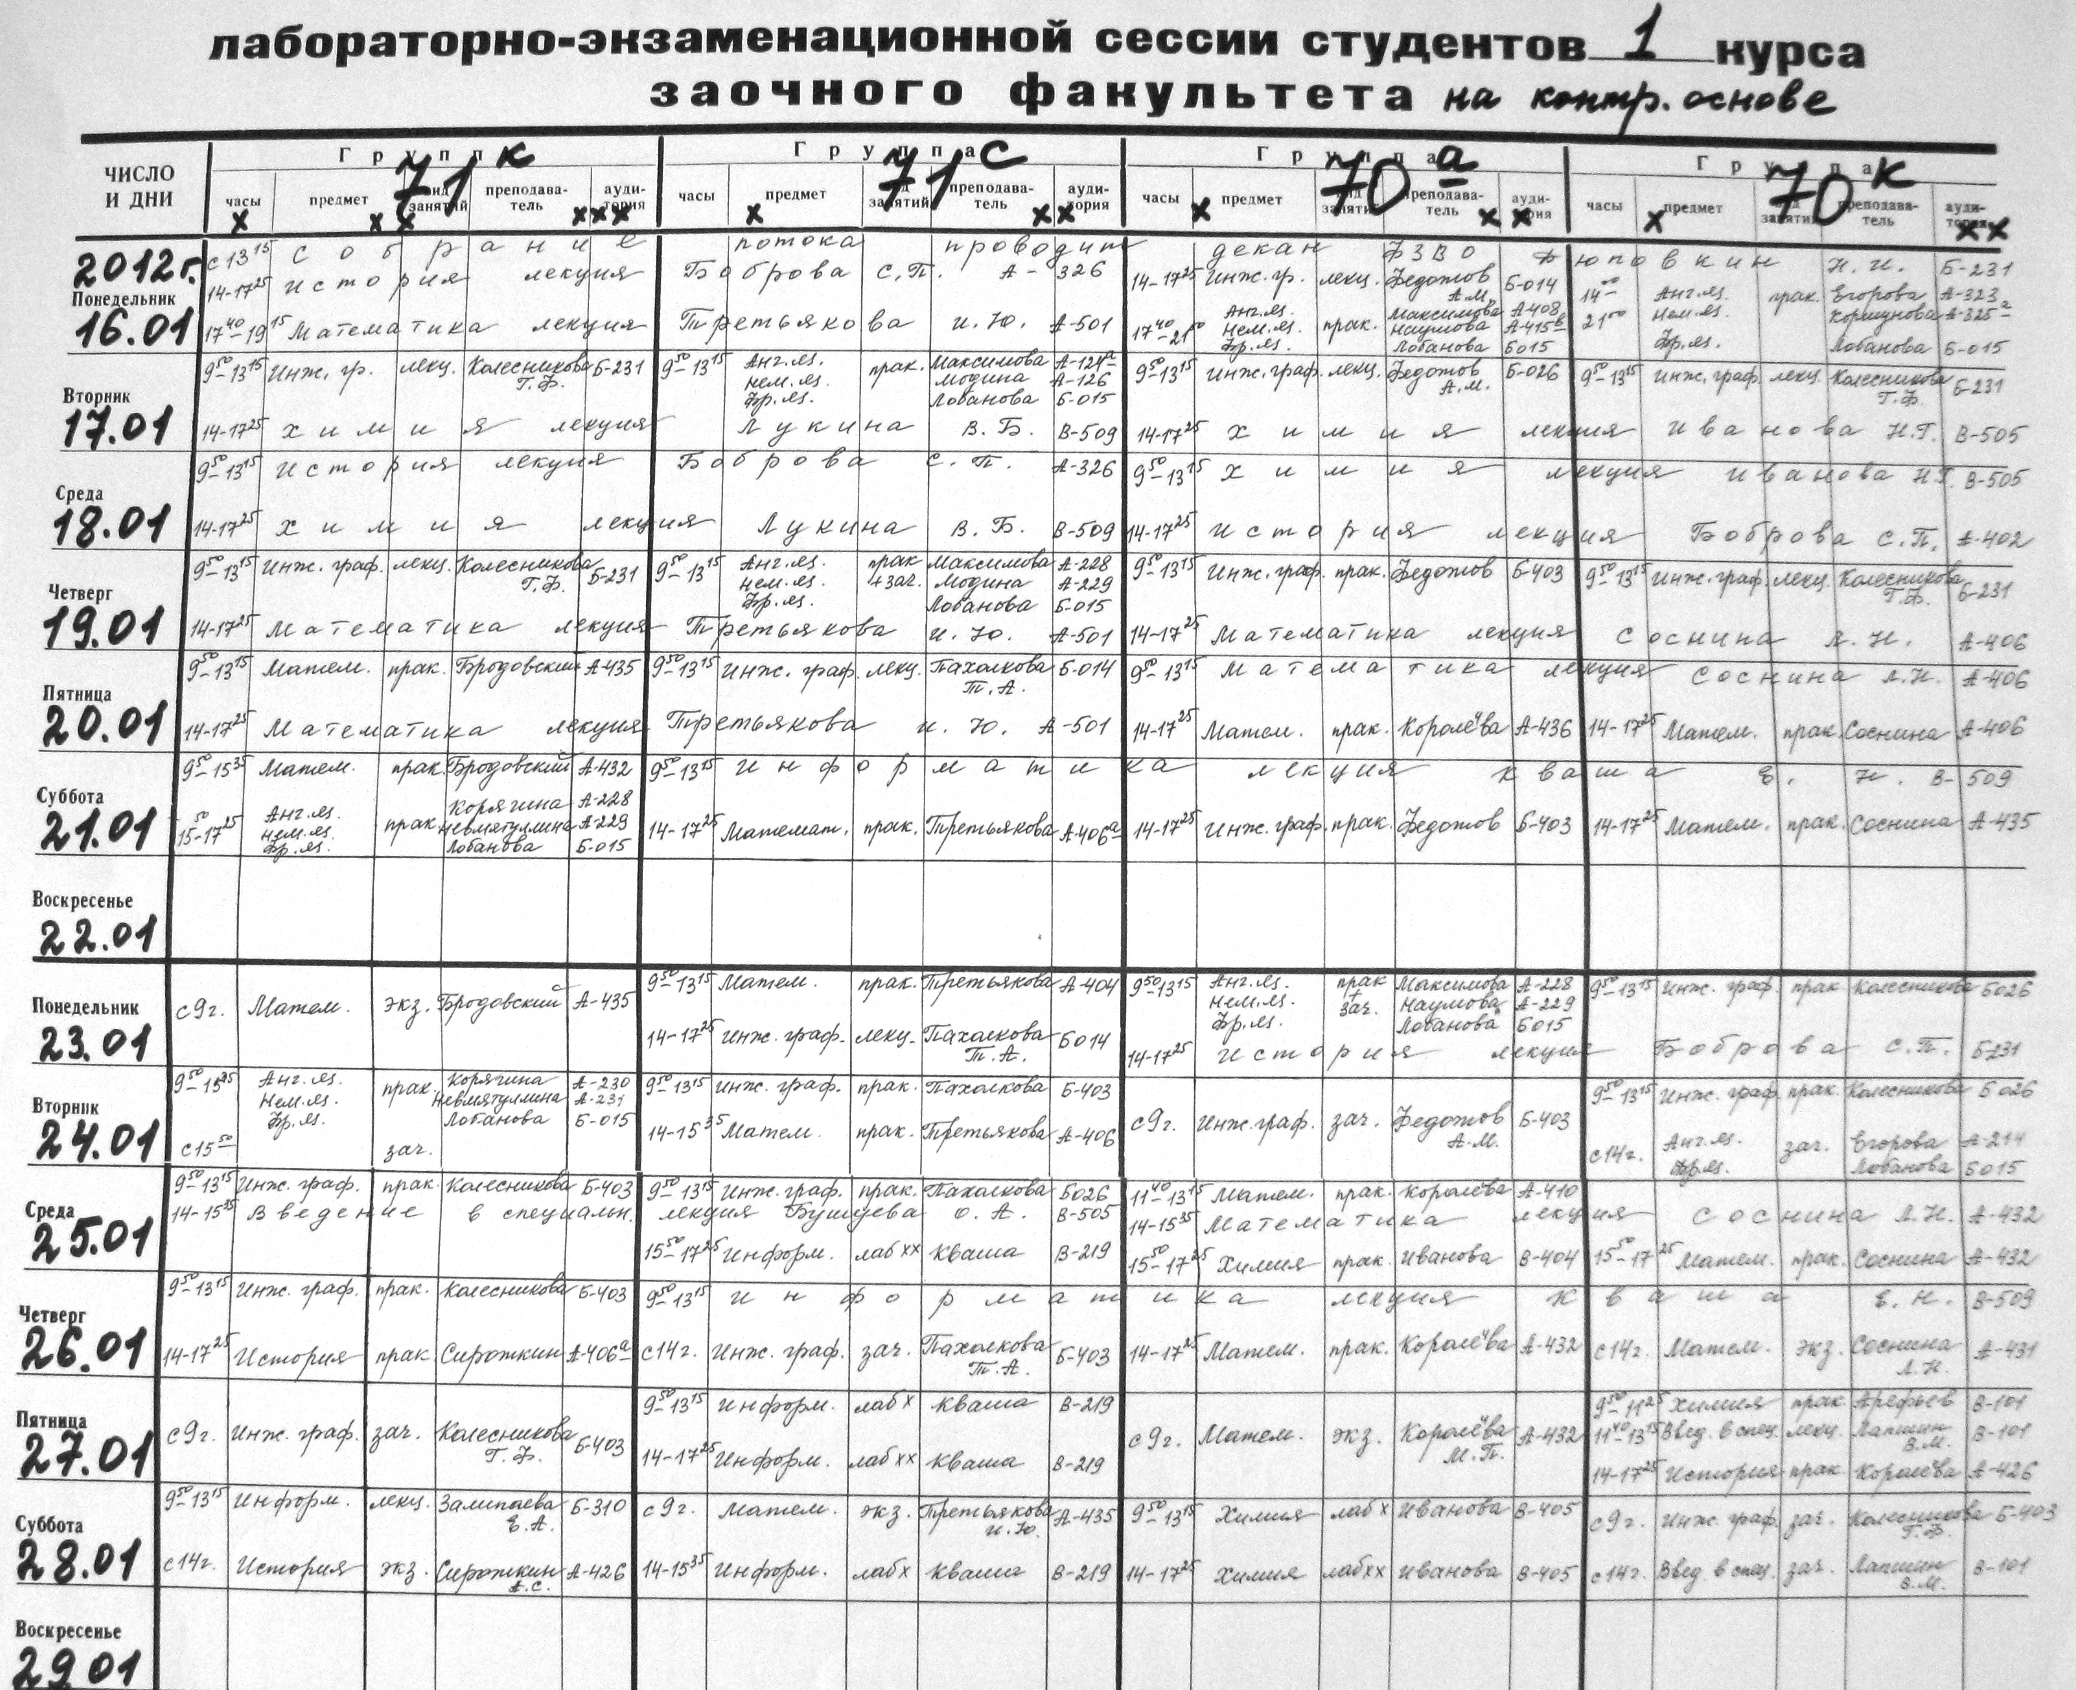 лабораторно-экзаменационной сессии студентов 1 курса
заочного факультета на контр. основе
ЧИСЛО И ДНИ Группа 71к Группа 71с Группа 70а Группа 70к
часы предмет вид занятий преподаватель аудитория часы предмет занятий преподаватель аудитория часы предмет занятий преподаватель аудитория часы предмет занятий преподаватель аудитория
2012г. с 13 15 Собрание потока проводит декан ФЗВО Н.И. Б-231
Понедельник 16.01
14-17 25 История лекция Боброва С.П. А-326 14-17 25 Инж.гр. лекц. Федотов А.М. Б-014 14 00 21 00 Англ.яз. Нем.яз. Фр.яз. прак. Егорова Коршунова Лобанова А-323 А-325а Б-015
17 40-19 15 Математика лекция Третьякова И.Ю. А-501 17 40-21 00 Анг.яз. Нем.яз. Фр.яз. прак. Максимова Наумова Лобанова А-408 А-415в Б015
Вторник 17.01
9 50-13 15 Инж. гр. лекц. Колесникова Г.Ф. Б-231 9 50-13 15 Анг.яз. Нем.яз. Фр.яз. прак. Максимова Модина Лобанова А-124а А-126 Б-015 9 50-13 15 Инж.граф. лекц. Федотов А.М. Б-026 9 50-13 15 Инж.граф. лекц. Колесникова Г.Ф. Б-231
14-17 25 Химия лекция Лукина В.Б. В-509 14-17 25 Химия лекция Иванова Н.Г. В-505
Среда 18.01
9 50-13 15 История лекция Боброва С.П. А-326 9 50-13 15 Химия лекция Иванова Н.Г. В-505
14-17 25 Химия лекция Лукина В.Б. В-509 14-17 25 История лекция Боброва С.П. А-402
Четверг 19.01
9 50-13 15 Инж. граф. лекц. Колесникова Г.Ф. Б-231 9 50-13 15 Анг.яз. Нем.яз. Фр.яз. прак +зач. Максимова Модина Лобанова А-228 А-229 Б-015 9 50-13 15 Инж.граф. прак. Федотов Б-403 9 50-13 15 Инж.граф. лекц. Колесникова Г.Ф. Б-231
14-17 25 Математика лекция Третьякова И.Ю. А-501 14-17 25 Математика лекция Соснина Л.Н. А-406
Пятница 20.01
9 50-13 15 Матем. прак. Бродовский А-435 9 50-13 15 Инж. граф. лекц. Пахолкова Т.А. Б-014 9 50-13 15 Математика лекция Соснина Л.Н. А-406
14-17 25 Математика лекция Третьякова И.Ю. А-501 14-17 25 Матем. прак. Королёва А-436 14-17 25 Матем. прак. Соснина А-406
Суббота 21.01
9 50-15 35 Матем. прак. Бродовский А-432 9 50-13 15 Информатика лекция Кваша Е.Н. В-509
15 50-17 25 Анг.яз. Нем.яз. Фр.яз. прак. Корягина Невмятуллина Лобанова А-228 А-229 Б-015 14-17 25 Математ. прак. Третьякова А-406а 14-17 25 Инж.граф. прак. Федотов Б-403 14-17 25 Матем. прак. Соснина А-435
Воскресенье 22.01
Понедельник 23.01
с 9г. Матем. экз. Бродовский А-435 9 50-13 15 Матем. прак. Третьякова А-404 9 50 13 15 Анг.яз. Нем.яз. Фр.яз. прак + зач. Максимова Наумова Лобанова А-228 А-229 Б015 9 50-13 15 Инж. граф. прак. Колесникова Б026
14-17 25 Инж. граф. лекц. Пахолкова Т.А. Б014 14-17 25 История лекция Боброва С.П. Б-231
Вторник 24.01
9 50-15 35 Анг.яз. Нем.яз. Фр.яз. прак. Корягина Невмятуллина Лобанова А-230 А-231 Б-015 9 50-13 15 Инж. граф. прак. Пахолкова Б-403 с 9г. Инж.граф. зач. Федотов А.М. Б-403 9 50-13 15 Инж.граф. прак. Колесникова Б026
с 15 50 зач. 14-15 35 Матем. прак. Третьякова А-406 с 14г. Анг.яз. Фр.яз. зач. Егорова Лобанова А-214 Б015
Среда 25.01
9 50-13 15 Инж. граф. прак. Колесникова Б-403 9 50-13 15 Инж. граф. прак. Пахолкова Б026 11 40-13 15 Матем. прак. Королёва А-410
14-15 35 Введение в специальн. лекция Бушуева О.А. В-505 14-15 35 Математика лекция Соснина Л.Н. А-432
15 50-17 25 Информ. лаб хх Кваша В-219 15 50-17 25 Химия прак. Иванова В-404 15 50-17 25 Матем. прак. Соснина А-432
Четверг 26.01
9 50-13 15 Инж. граф. прак. Колесникова Б-403 9 50-13 15 Информатика лекция Кваша Е.Н. В-509
14-17 25 История прак. Сироткин А-406а с 14г. Инж. граф. зач. Пахолкова Т.А. Б-403 14-17 25 Матем. прак. Королёва А-432 с 14г. Матем. экз. Соснина Л.Н. А-431
Пятница 27.01
с 9г. Инж. граф. зач. Колесникова Г.Ф. Б-403 9 50-13 15 Информ. лаб х Кваша В-219 с 9г. Матем. экз. Королёва М.П. А-432 9 50-11 25 Химия прак Арефьев В-101
11 40-13 15 Введ. в спец. лекц. Лапшин В.М. В-101
14-17 25 Информ. лаб хх Кваша В-219 14-17 25 История прак. Королёва А-426
Суббота 28.01
9 50-13 15 Информ. лекц. Залипаева Е.А. Б-310 с 9г. Матем. экз. Третьякова И.Ю. А-435 9 50-13 15 Химия лаб х Иванова В-405 с 9г. Инж. граф. зач. Колесникова Г.Ф. Б-403
с 14г. История экз. Сироткин А.С. А-426 14-15 35 Информ. лаб х Кваша В-219 14-17 25 Химия лаб хх Иванова В-405 с 14г. Введ. в спец. зач. Лапшин В.М. В-101
Воскресенье 29.01